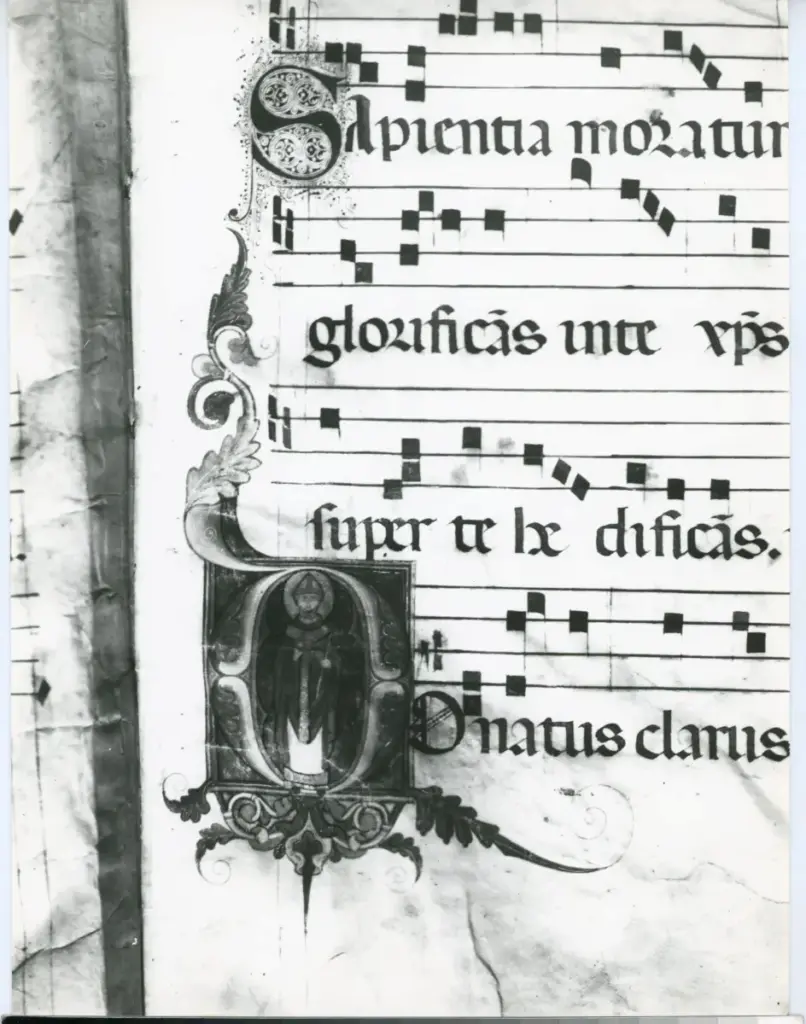 Sapientia moratur
glorificãs inte xp̃s
super te hẽ dificãs.
Donatus clarus